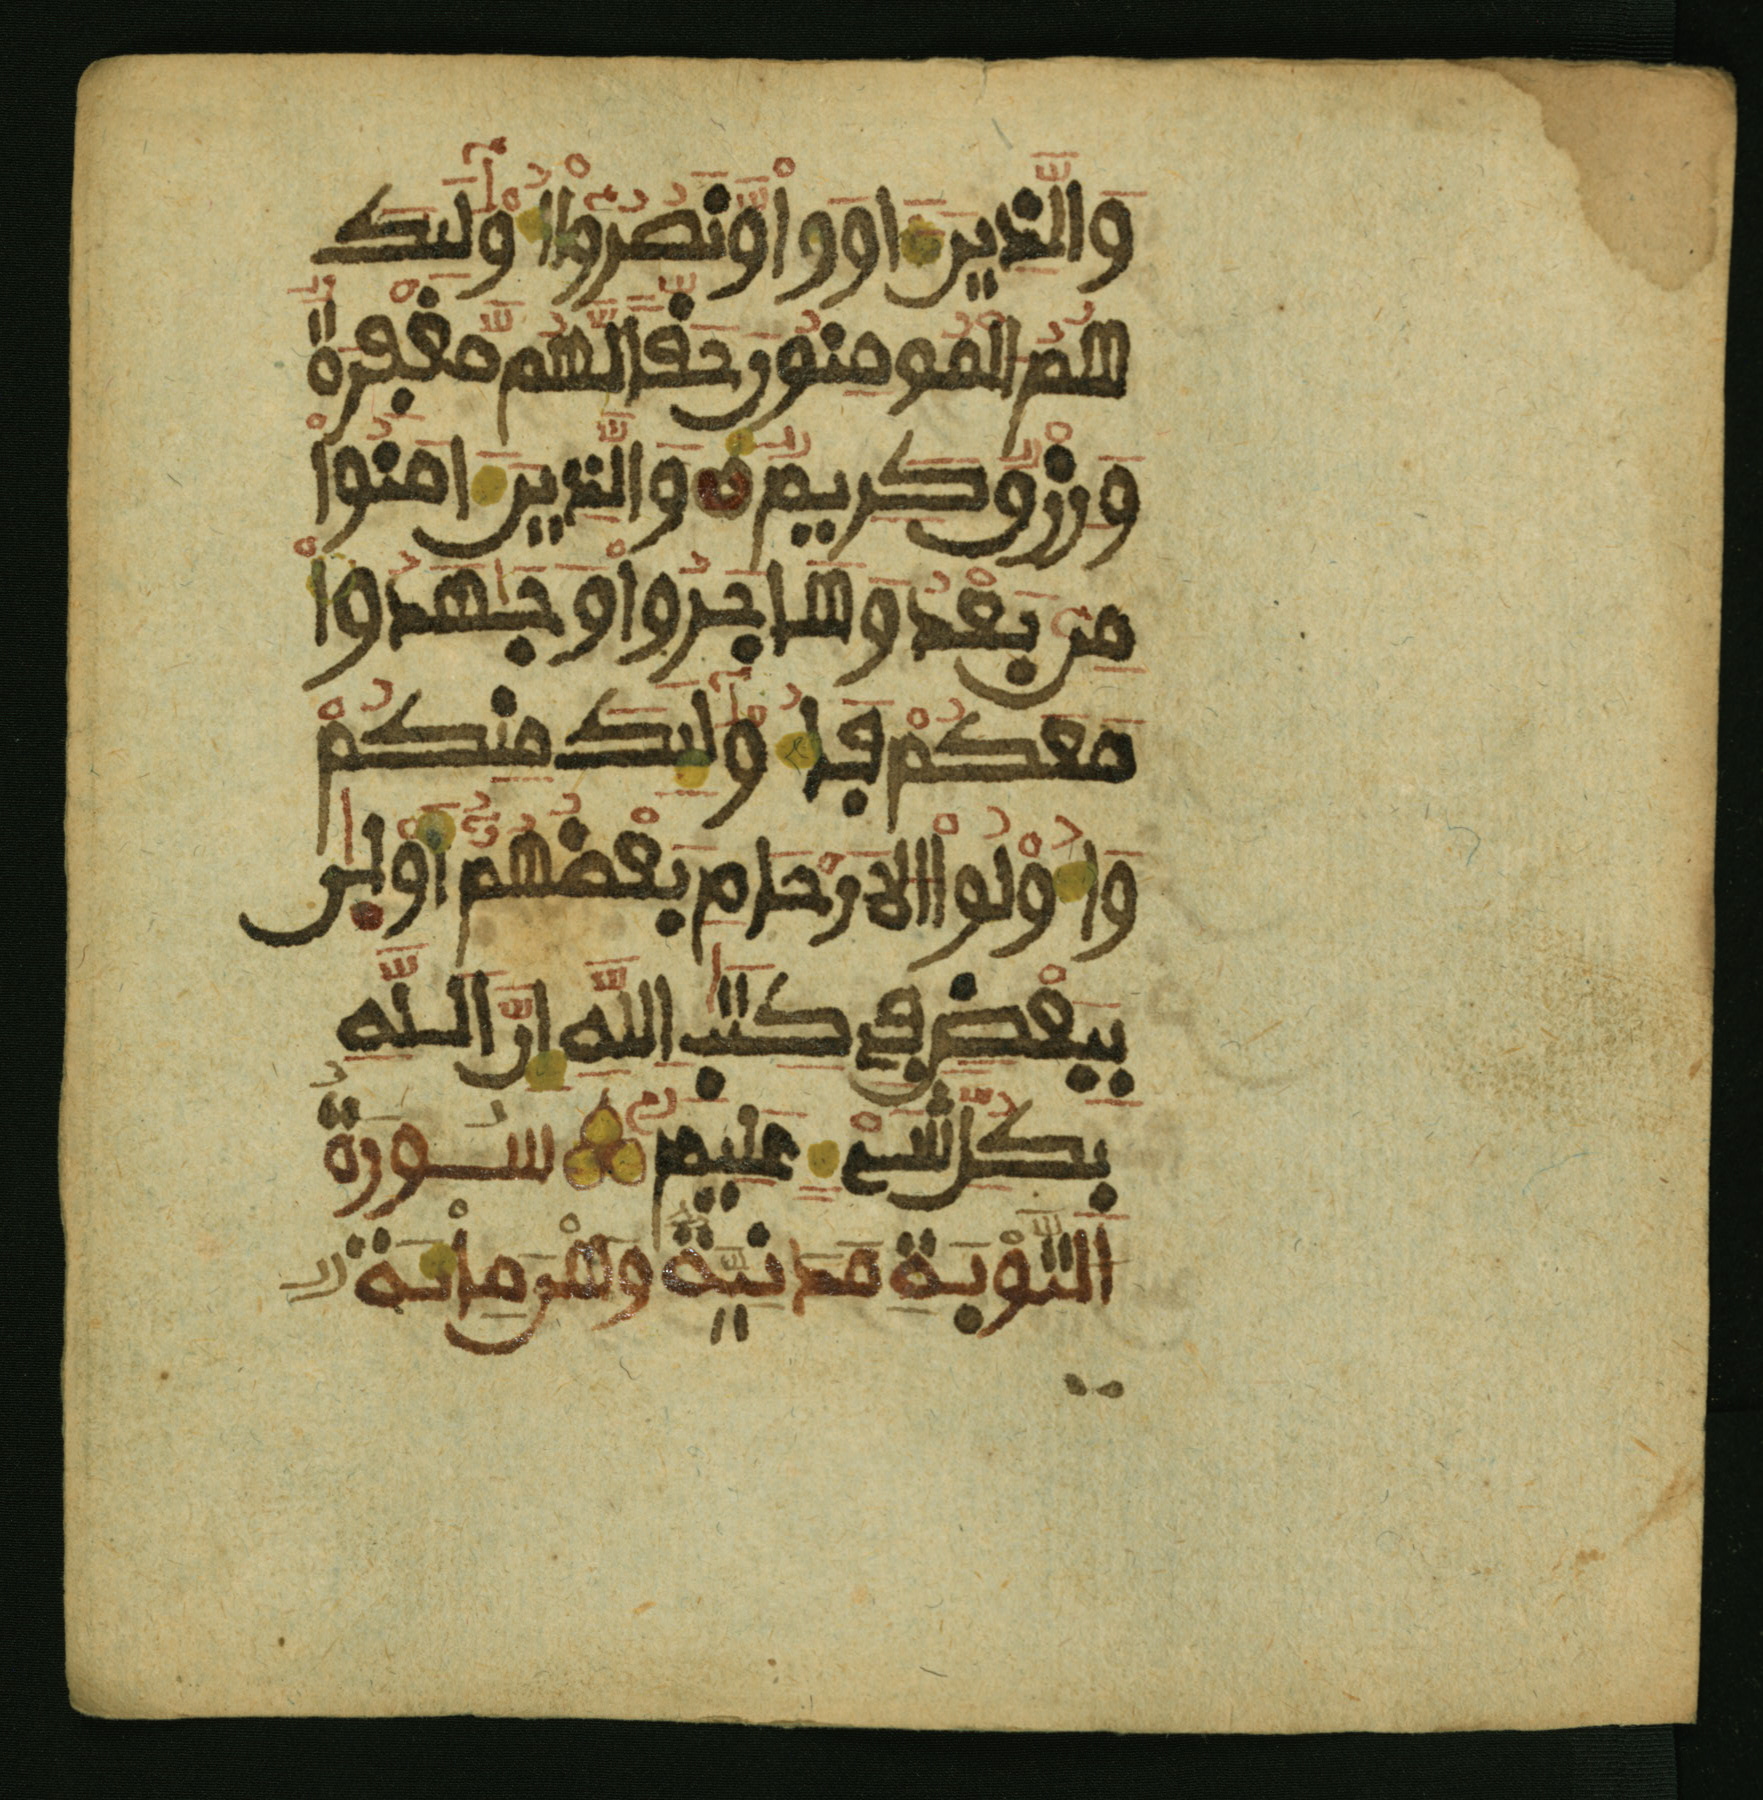 وَالَّذِينَ ءَاوَوا۟ وَّنَصَرُوٓا۟ أُو۟لَٰٓئِكَ
هُمُ الْمُومِنُونَ حَقّاً لَّهُم مَّغْفِرَةٌ
وَرِزْقٌ كَرِيمٌ وَالَّذِينَ ءَامَنُوا۟
مِن بَعْدُ وَهَاجَرُوا۟ وَجَٰهَدُوا۟
مَعَكُمْ فَأُو۟لَٰٓئِكَ مِنكُمْ
وَأُو۟لُوا۟ الَارْحَامِ بَعْضُهُمُۥٓ أَوْلَىٰ
بِبَعْضٍ فِي كِتَٰبِ اللَّهِ إِنَّ اللَّهَ
بِكُلِّ شَيْءٍ عَلِيمٌ سُورَةُ
التَّوْبَةِ مَدَنِيَّةٌ وَهْىَ مِأْئَةٌ